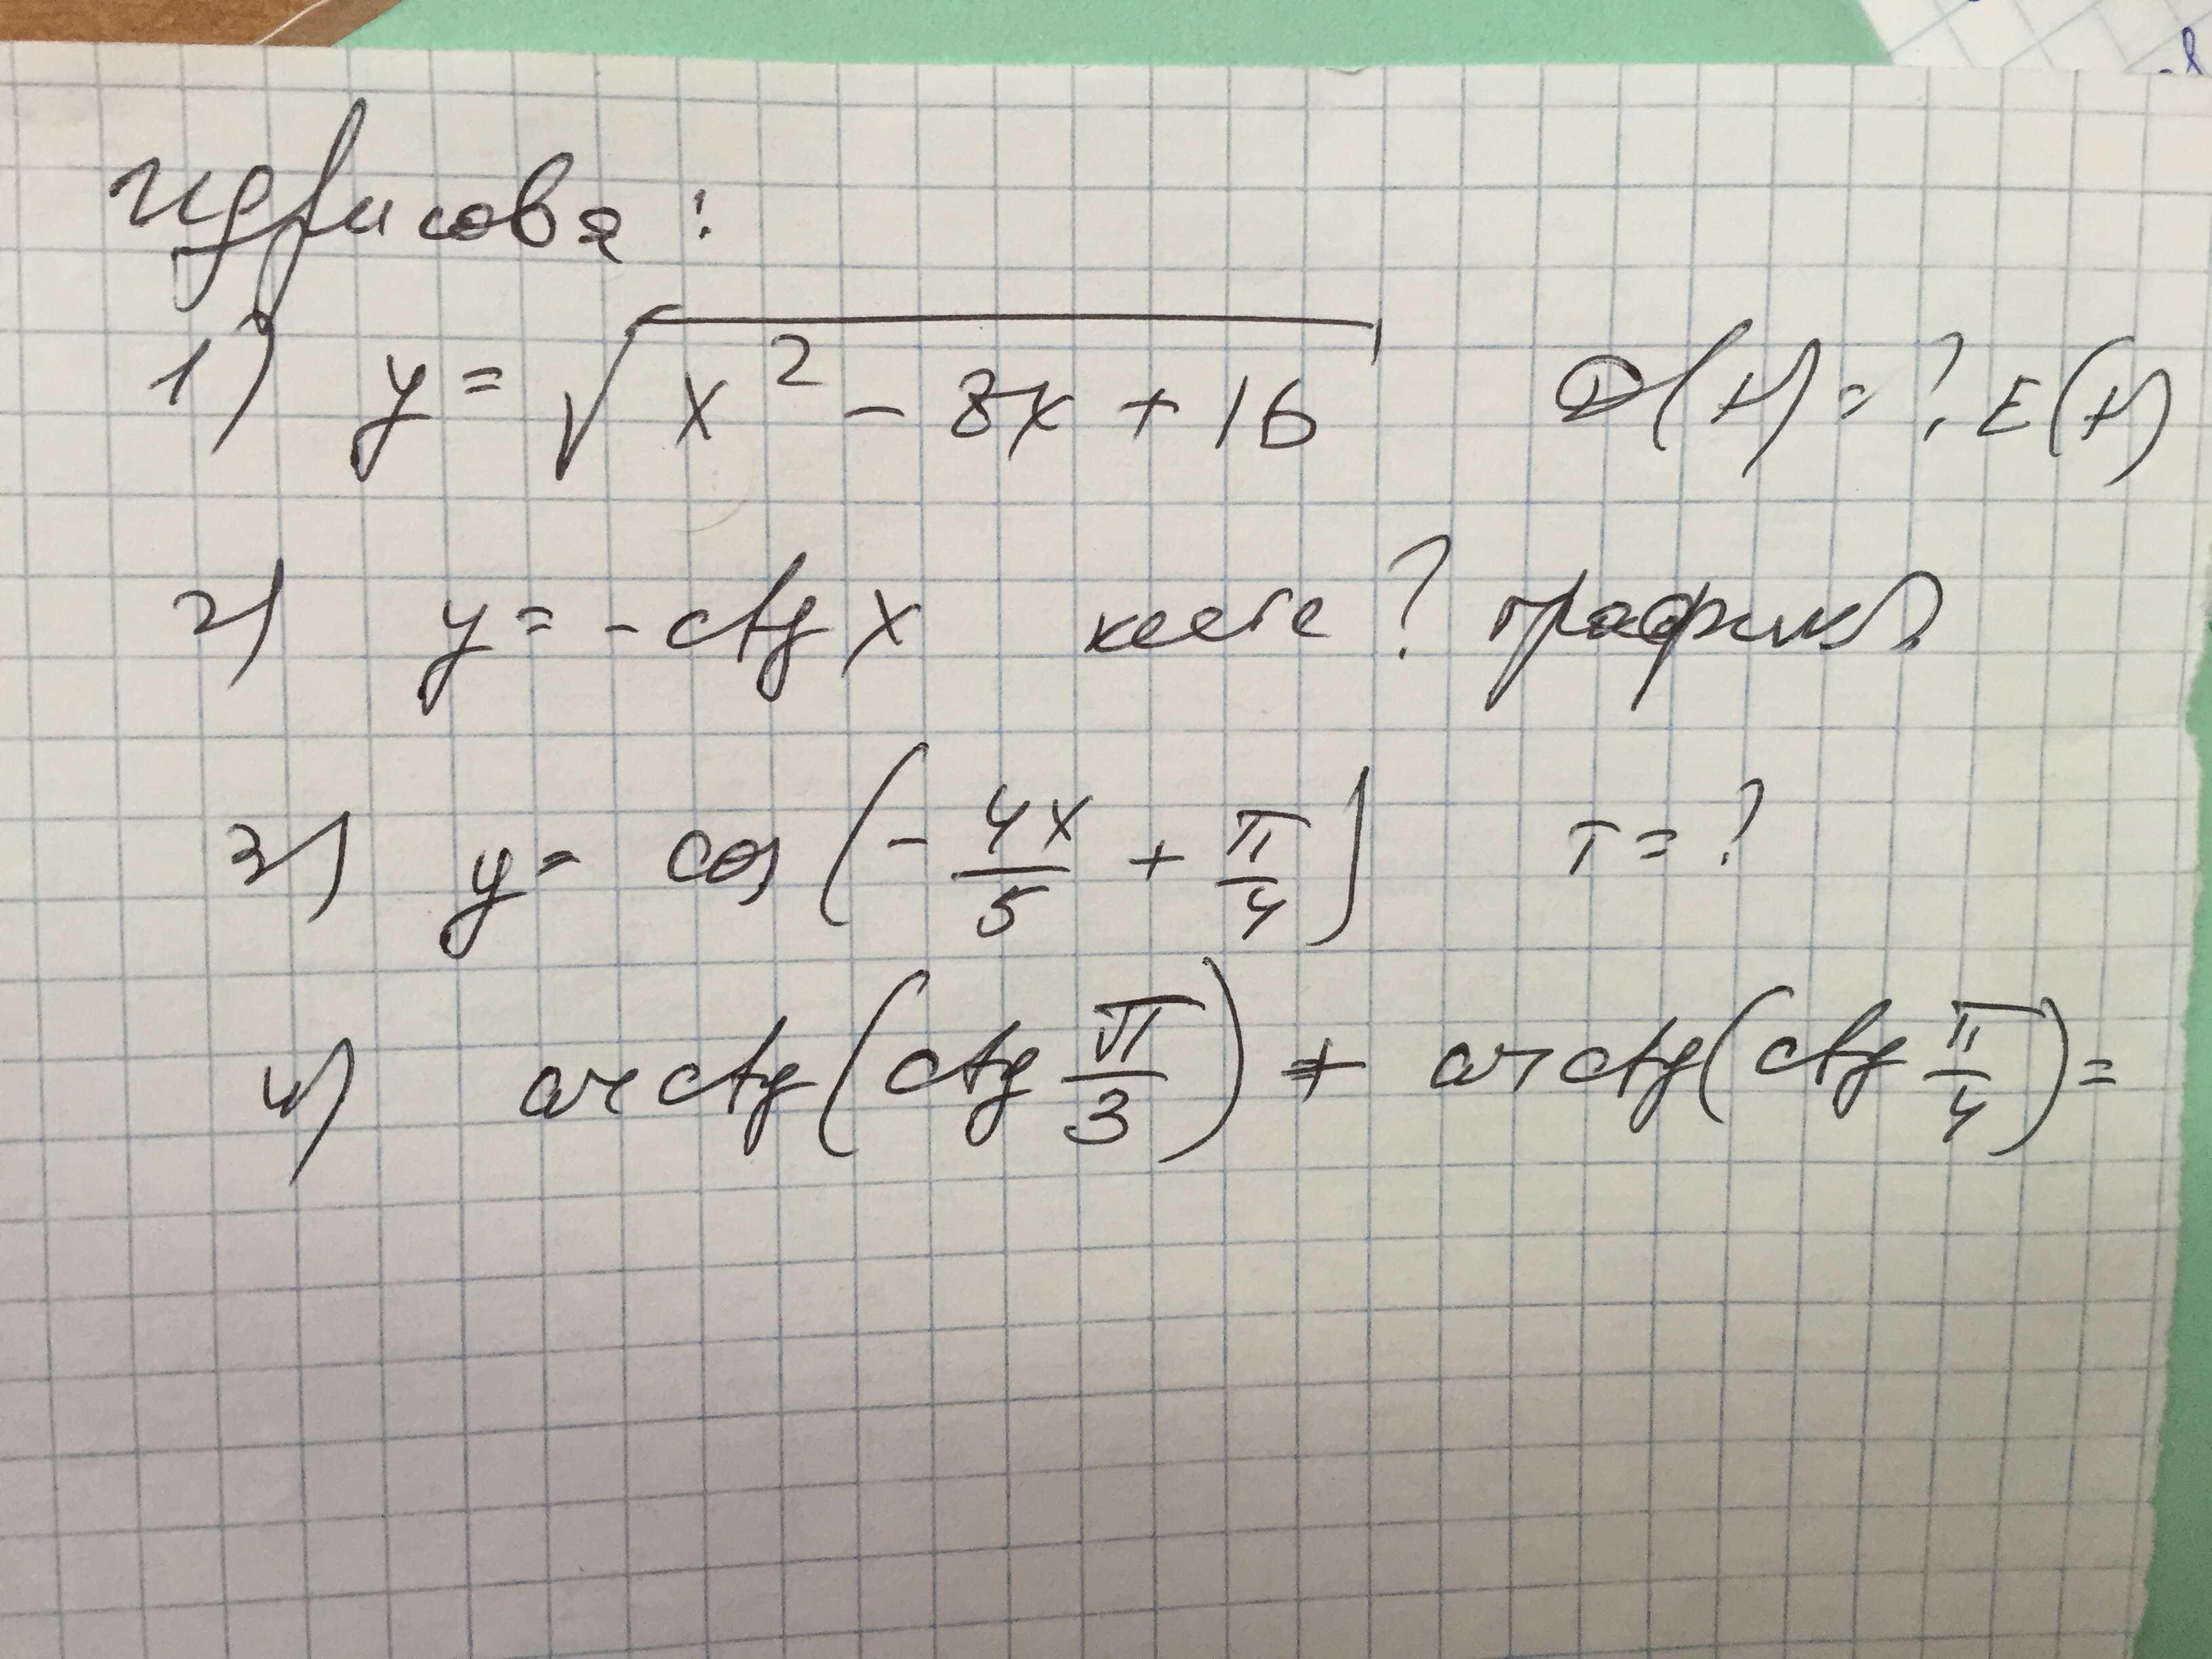 Идрисова:
1) y = √(x² - 8x + 16) D(f) = ? E(f)
2) y = -ctg x кесте? график?
3) y = cos(-4x/5 + π/4) T = ?
4) arcctg(ctg π/3) + arcctg(ctg π/4) =